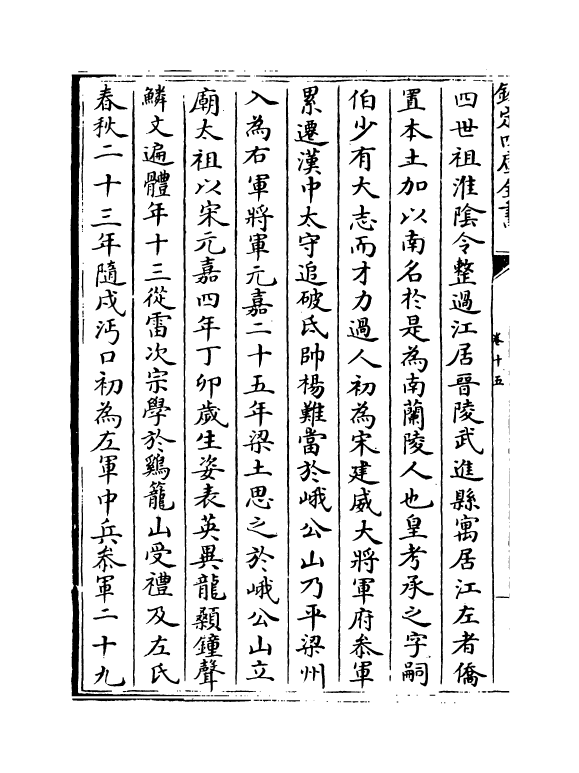 欽定四庫全書
卷十五
四世祖淮陰令整過江居晉陵武進縣寓居江左者僑
置本土加以南名於是為南蘭陵人也皇考承之字嗣
伯少有大志而才力過人初為宋建威大將軍府叅軍
累遷漢中太守追破氐帥楊難當於峨公山乃平梁州
入為右軍將軍元嘉二十五年梁土思之於峨公山立
廟太祖以宋元嘉四年丁卯歲生姿表英異龍顙鐘聲
鱗文遍體年十三從雷次宗學於鷄籠山受禮及左氏
春秋二十三年隨戍沔口初為左軍中兵叅軍二十九